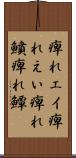 痺れエイ痺
れえい痺れ
鱝痺れ鱏